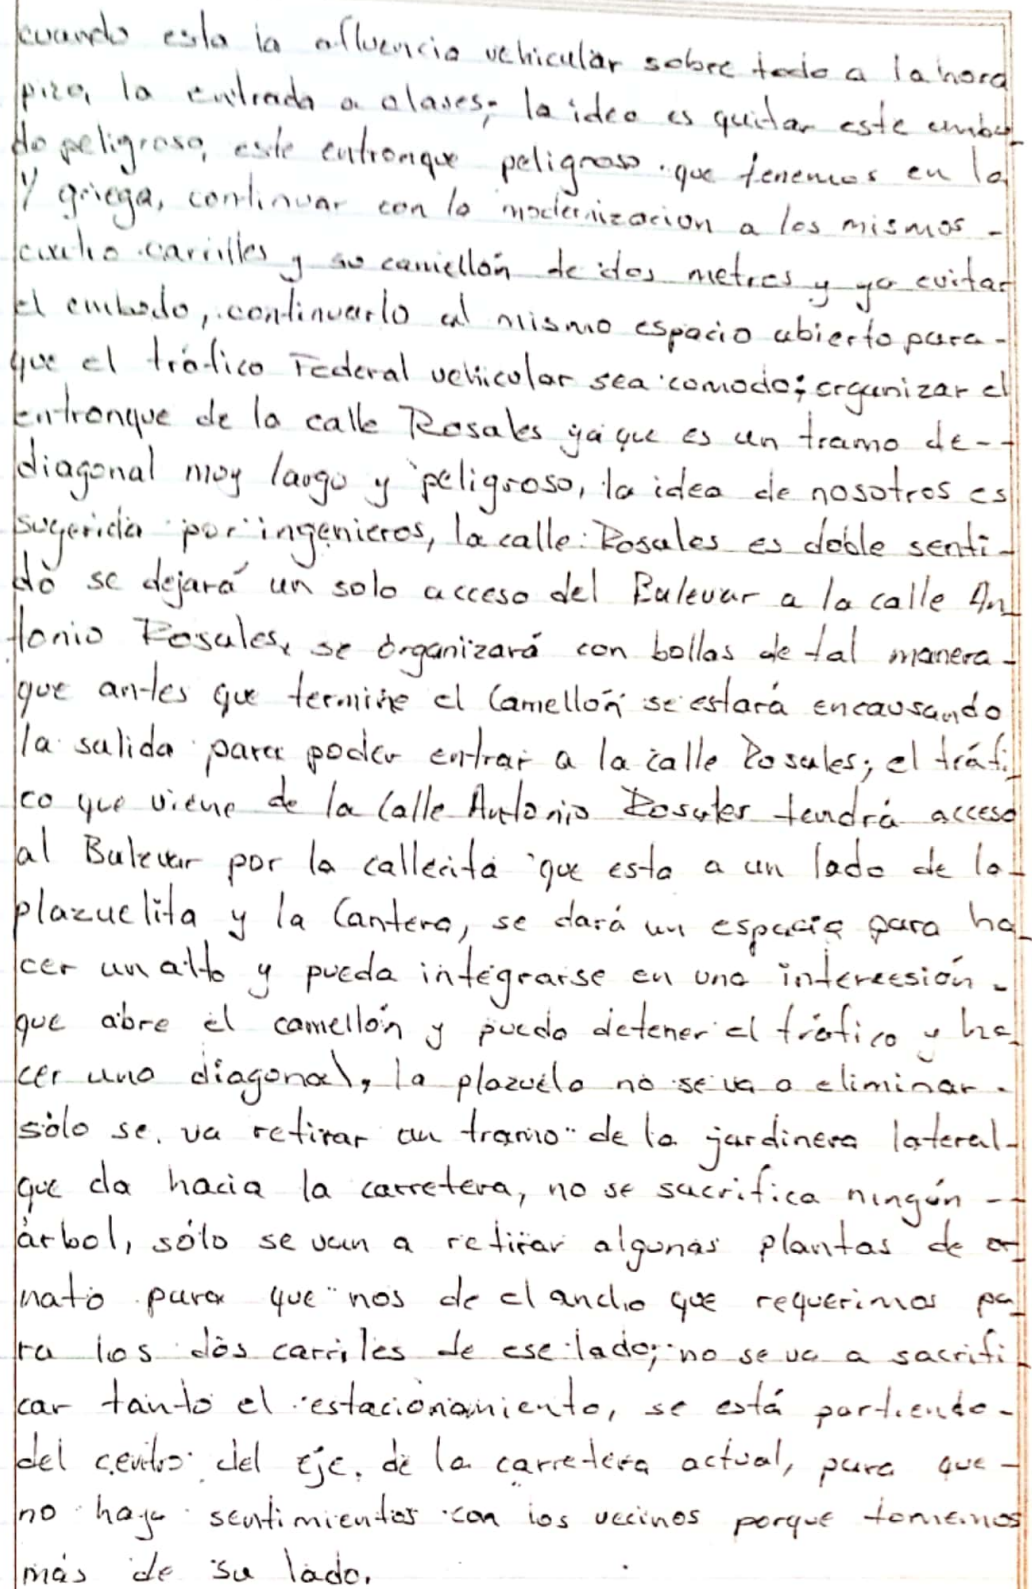 cuando esta la afluencia vehicular sobre todo a la hora
pico, la entrada a clases; la idea es quitar este embu_
do peligroso, este entronque peligroso que tenemos en la
Y griega, continuar con la modernizacion a los mismos -
cuatro carriles y su camellón de dos metros y ya evitar
el embudo, continuarlo al mismo espacio abierto para -
que el tráfico Federal vehicular sea comodo; organizar el
entronque de la calle Rosales ya que es un tramo de --
diagonal muy largo y peligroso, la idea de nosotros es
sugerida por ingenieros, la calle Rosales es doble senti-
do se dejará un solo acceso del Bulevar a la calle An_
tonio Rosales, se organizará con bollas de tal manera -
que antes que termine el Camellón se estará encausando
la salida para poder entrar a la calle Rosales; el tráfi_
co que viene de la Calle Antonio Rosales tendrá acceso
al Bulevar por la callecita que esta a un lado de la -
plazuelita y la Cantera, se dará un espacio para ha_
cer un alto y pueda integrarse en una intercesión -
que abre el camellón y pueda detener el tráfico y ha_
cer una diagonal, la plazuela no se va a eliminar -
sólo se va retirar un tramo de la jardinera lateral -
que da hacia la carretera, no se sacrifica ningún --
árbol, sólo se van a retirar algunas plantas de or_
nato para que nos de el ancho que requerimos pa_
ra los dos carriles de ese lado; no se va a sacrifi_
car tanto el estacionamiento, se está partiendo -
del centro del eje de la carretera actual, para que -
no haya sentimientos con los vecinos porque tomemos
más de su lado.